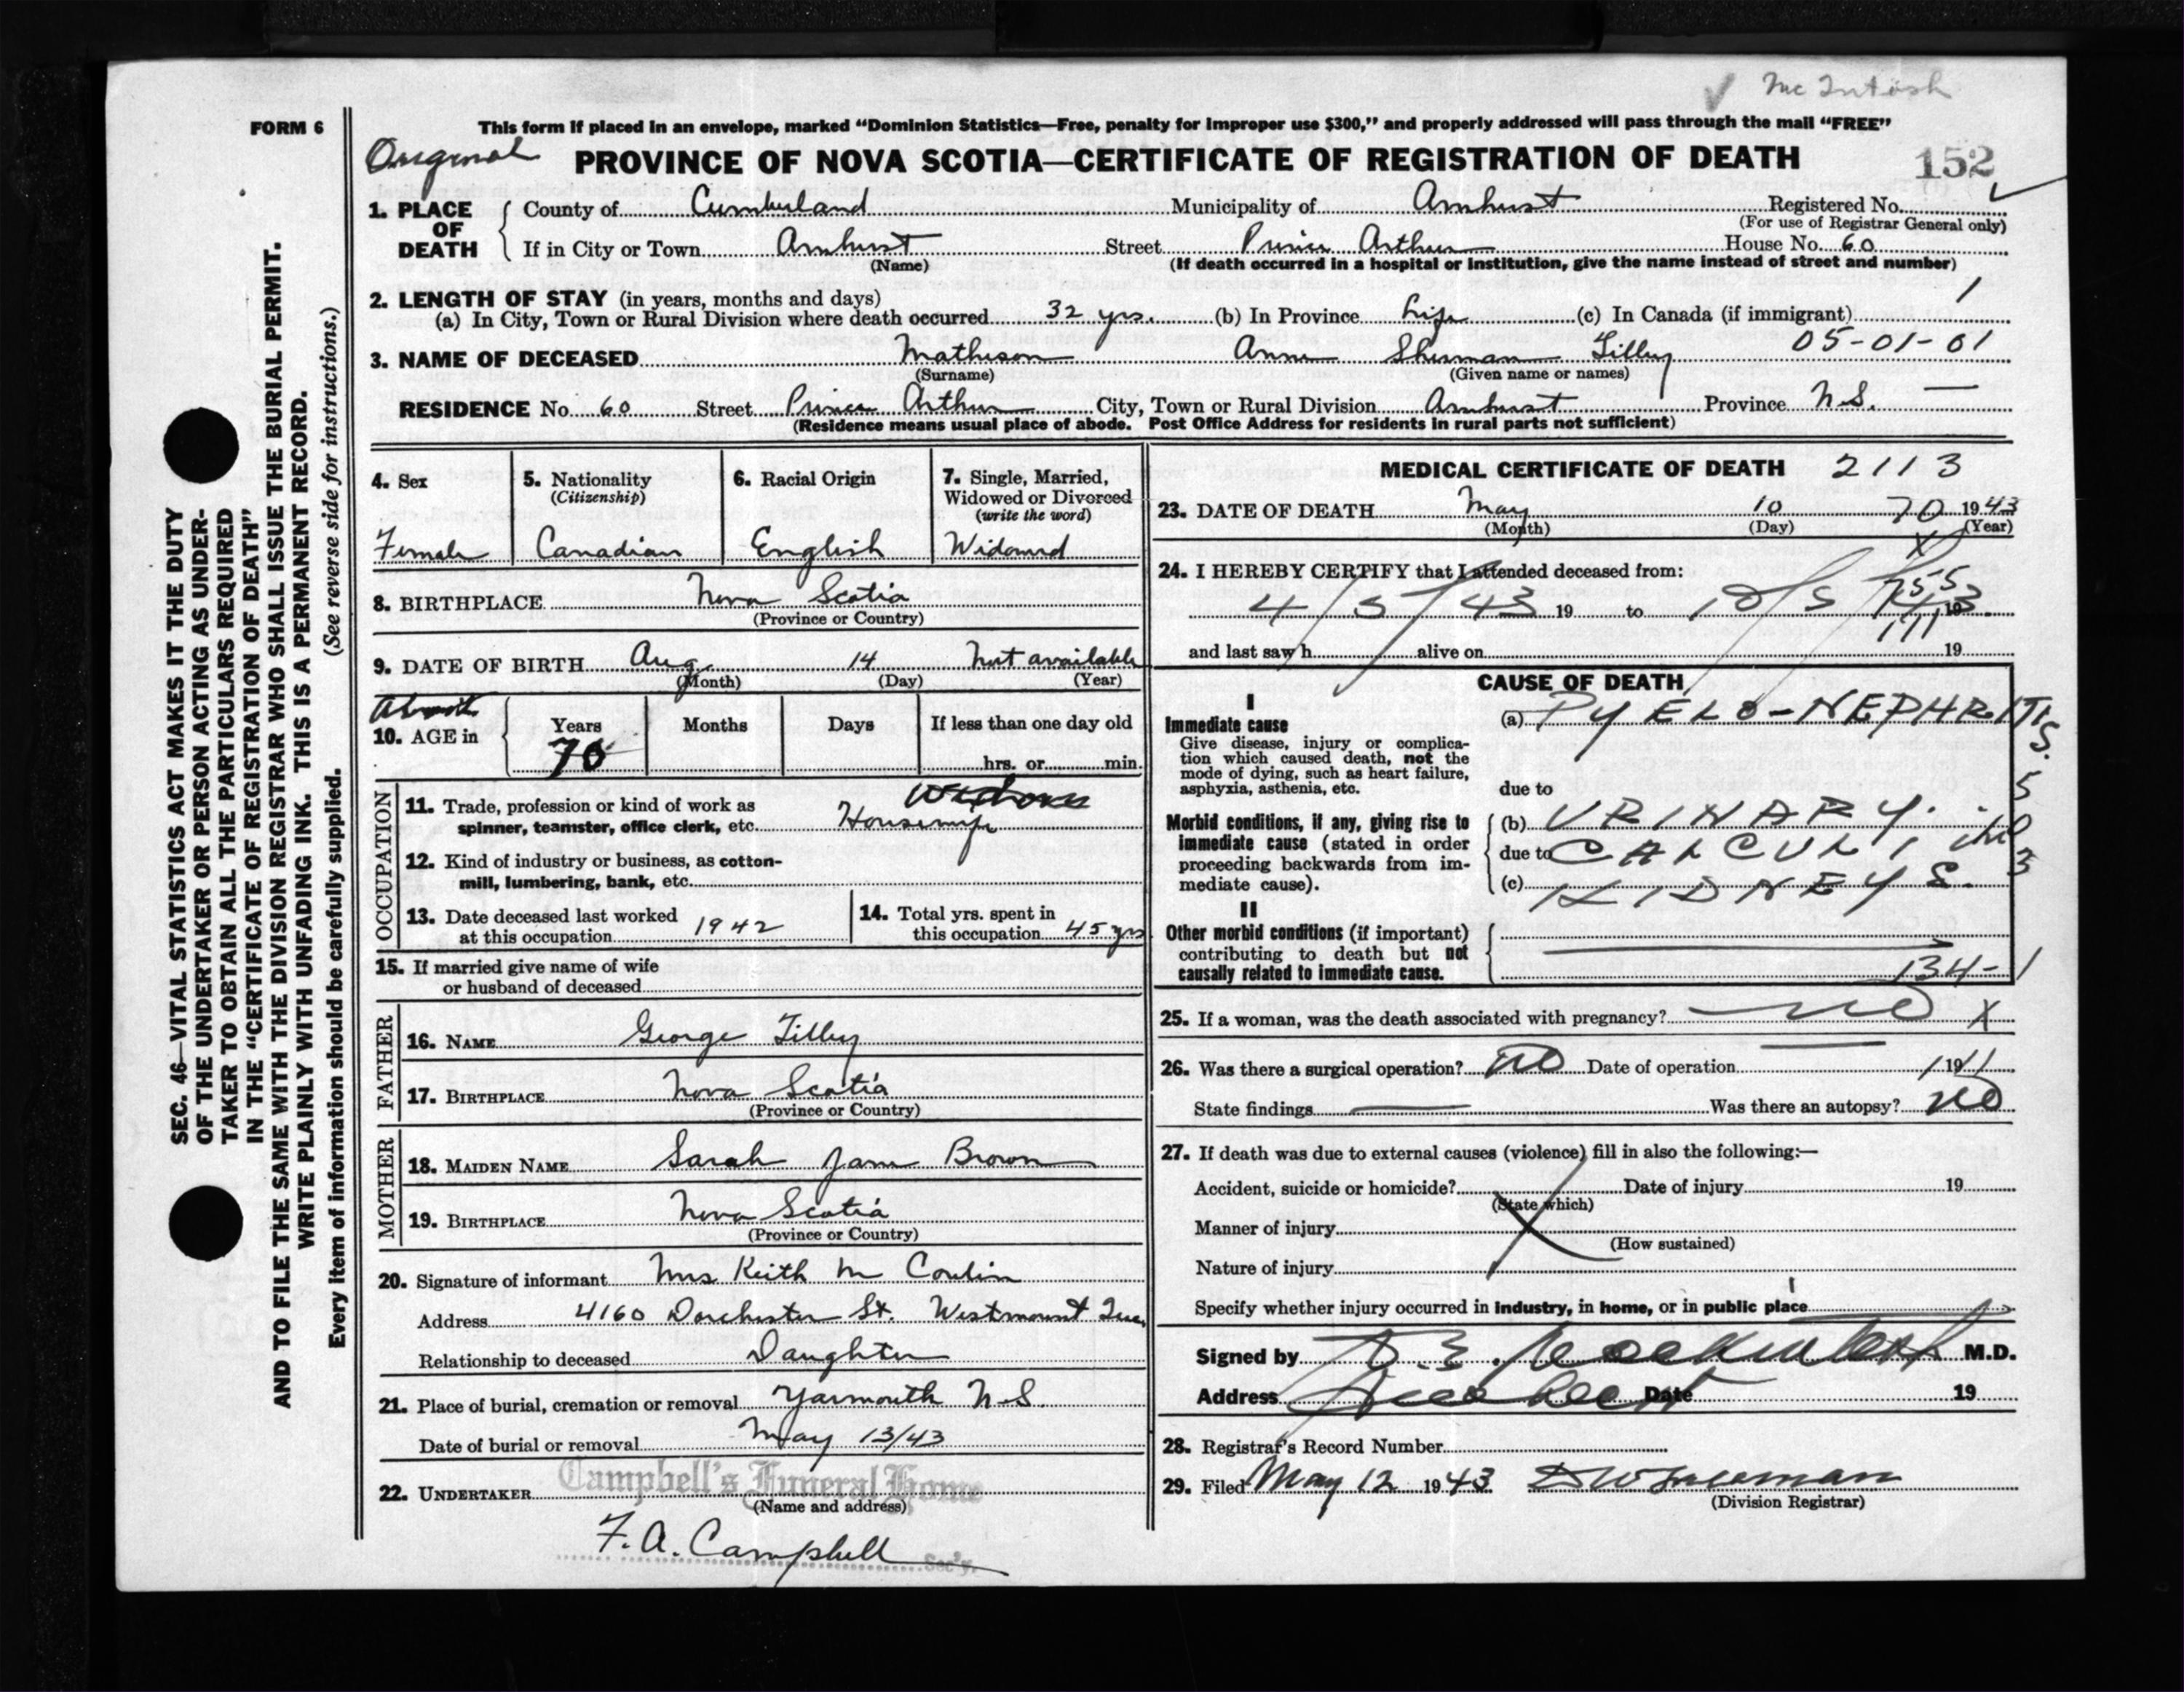 Mc Intosh
FORM 6
This form if placed in an envelope, marked “Dominion Statistics—Free, penalty for improper use $300,” and properly addressed will pass through the mail “FREE”
Original
PROVINCE OF NOVA SCOTIA—CERTIFICATE OF REGISTRATION OF DEATH 152
1. PLACE OF DEATH
County of Cumberland Municipality of Amherst Registered No.
(For use of Registrar General only)
If in City or Town Amherst Street Prince Arthur House No. 60
(Name) (If death occurred in a hospital or institution, give the name instead of street and number)
2. LENGTH OF STAY (in years, months and days)
(a) In City, Town or Rural Division where death occurred 32 yrs. (b) In Province Life (c) In Canada (if immigrant) 1
3. NAME OF DECEASED Matheson Anne Sherman Tilley 05-01-01
(Surname) (Given name or names)
RESIDENCE No. 60 Street Prince Arthur City, Town or Rural Division Amherst Province N.S. —
(Residence means usual place of abode. Post Office Address for residents in rural parts not sufficient)
4. Sex
Female
5. Nationality
(Citizenship)
Canadian
6. Racial Origin
English
7. Single, Married,
Widowed or Divorced
(write the word)
Widowed
8. BIRTHPLACE Nova Scotia
(Province or Country)
9. DATE OF BIRTH Aug. 14 Not available
(Month) (Day) (Year)
About
10. AGE in
Years Months Days If less than one day old
70 hrs. or min.
OCCUPATION
11. Trade, profession or kind of work as
spinner, teamster, office clerk, etc. Housewife
12. Kind of industry or business, as cotton-
mill, lumbering, bank, etc.
13. Date deceased last worked
at this occupation 1942
14. Total yrs. spent in
this occupation 45 yrs
15. If married give name of wife
or husband of deceased
FATHER
16. NAME George Tilley
17. BIRTHPLACE Nova Scotia
(Province or Country)
MOTHER
18. MAIDEN NAME Sarah Jane Brown
19. BIRTHPLACE Nova Scotia
(Province or Country)
20. Signature of informant Mrs Keith M
Address 4160 Dorchester St. Westmount Que.
Relationship to deceased Daughter
21. Place of burial, cremation or removal Yarmouth N.S.
Date of burial or removal May 13/43
22. UNDERTAKER Campbell's Funeral Home
(Name and address)
F. A. Campbell Sec'y.
MEDICAL CERTIFICATE OF DEATH 2113
23. DATE OF DEATH May 10 70 1943
(Month) (Day) (Year)
24. I HEREBY CERTIFY that I attended deceased from:
4/5/43 19 to 10/5/43 19
and last saw h alive on 19
CAUSE OF DEATH
I
Immediate cause
Give disease, injury or complica-
tion which caused death, not the
mode of dying, such as heart failure,
asphyxia, asthenia, etc.
(a) PYELO-NEPHRITIS.
due to
Morbid conditions, if any, giving rise to
immediate cause (stated in order
proceeding backwards from im-
mediate cause).
(b) URINARY
due to CALCULI, in
(c) KIDNEYS.
II
Other morbid conditions (if important)
contributing to death but not
causally related to immediate cause.
134-1
25. If a woman, was the death associated with pregnancy? no X
26. Was there a surgical operation? no Date of operation 19
State findings — Was there an autopsy? no
27. If death was due to external causes (violence) fill in also the following:—
Accident, suicide or homicide? Date of injury 19
(State which)
Manner of injury
(How sustained)
Nature of injury
Specify whether injury occurred in industry, in home, or in public place
Signed by M.D.
Address Date 19
28. Registrar's Record Number
29. Filed May 12 1943
(Division Registrar)
SEC. 46—VITAL STATISTICS ACT MAKES IT THE DUTY
OF THE UNDERTAKER OR PERSON ACTING AS UNDER-
TAKER TO OBTAIN ALL THE PARTICULARS REQUIRED
IN THE “CERTIFICATE OF REGISTRATION OF DEATH”
AND TO FILE THE SAME WITH THE DIVISION REGISTRAR WHO SHALL ISSUE THE BURIAL PERMIT.
WRITE PLAINLY WITH UNFADING INK. THIS IS A PERMANENT RECORD.
Every item of information should be carefully supplied. (See reverse side for instructions.)